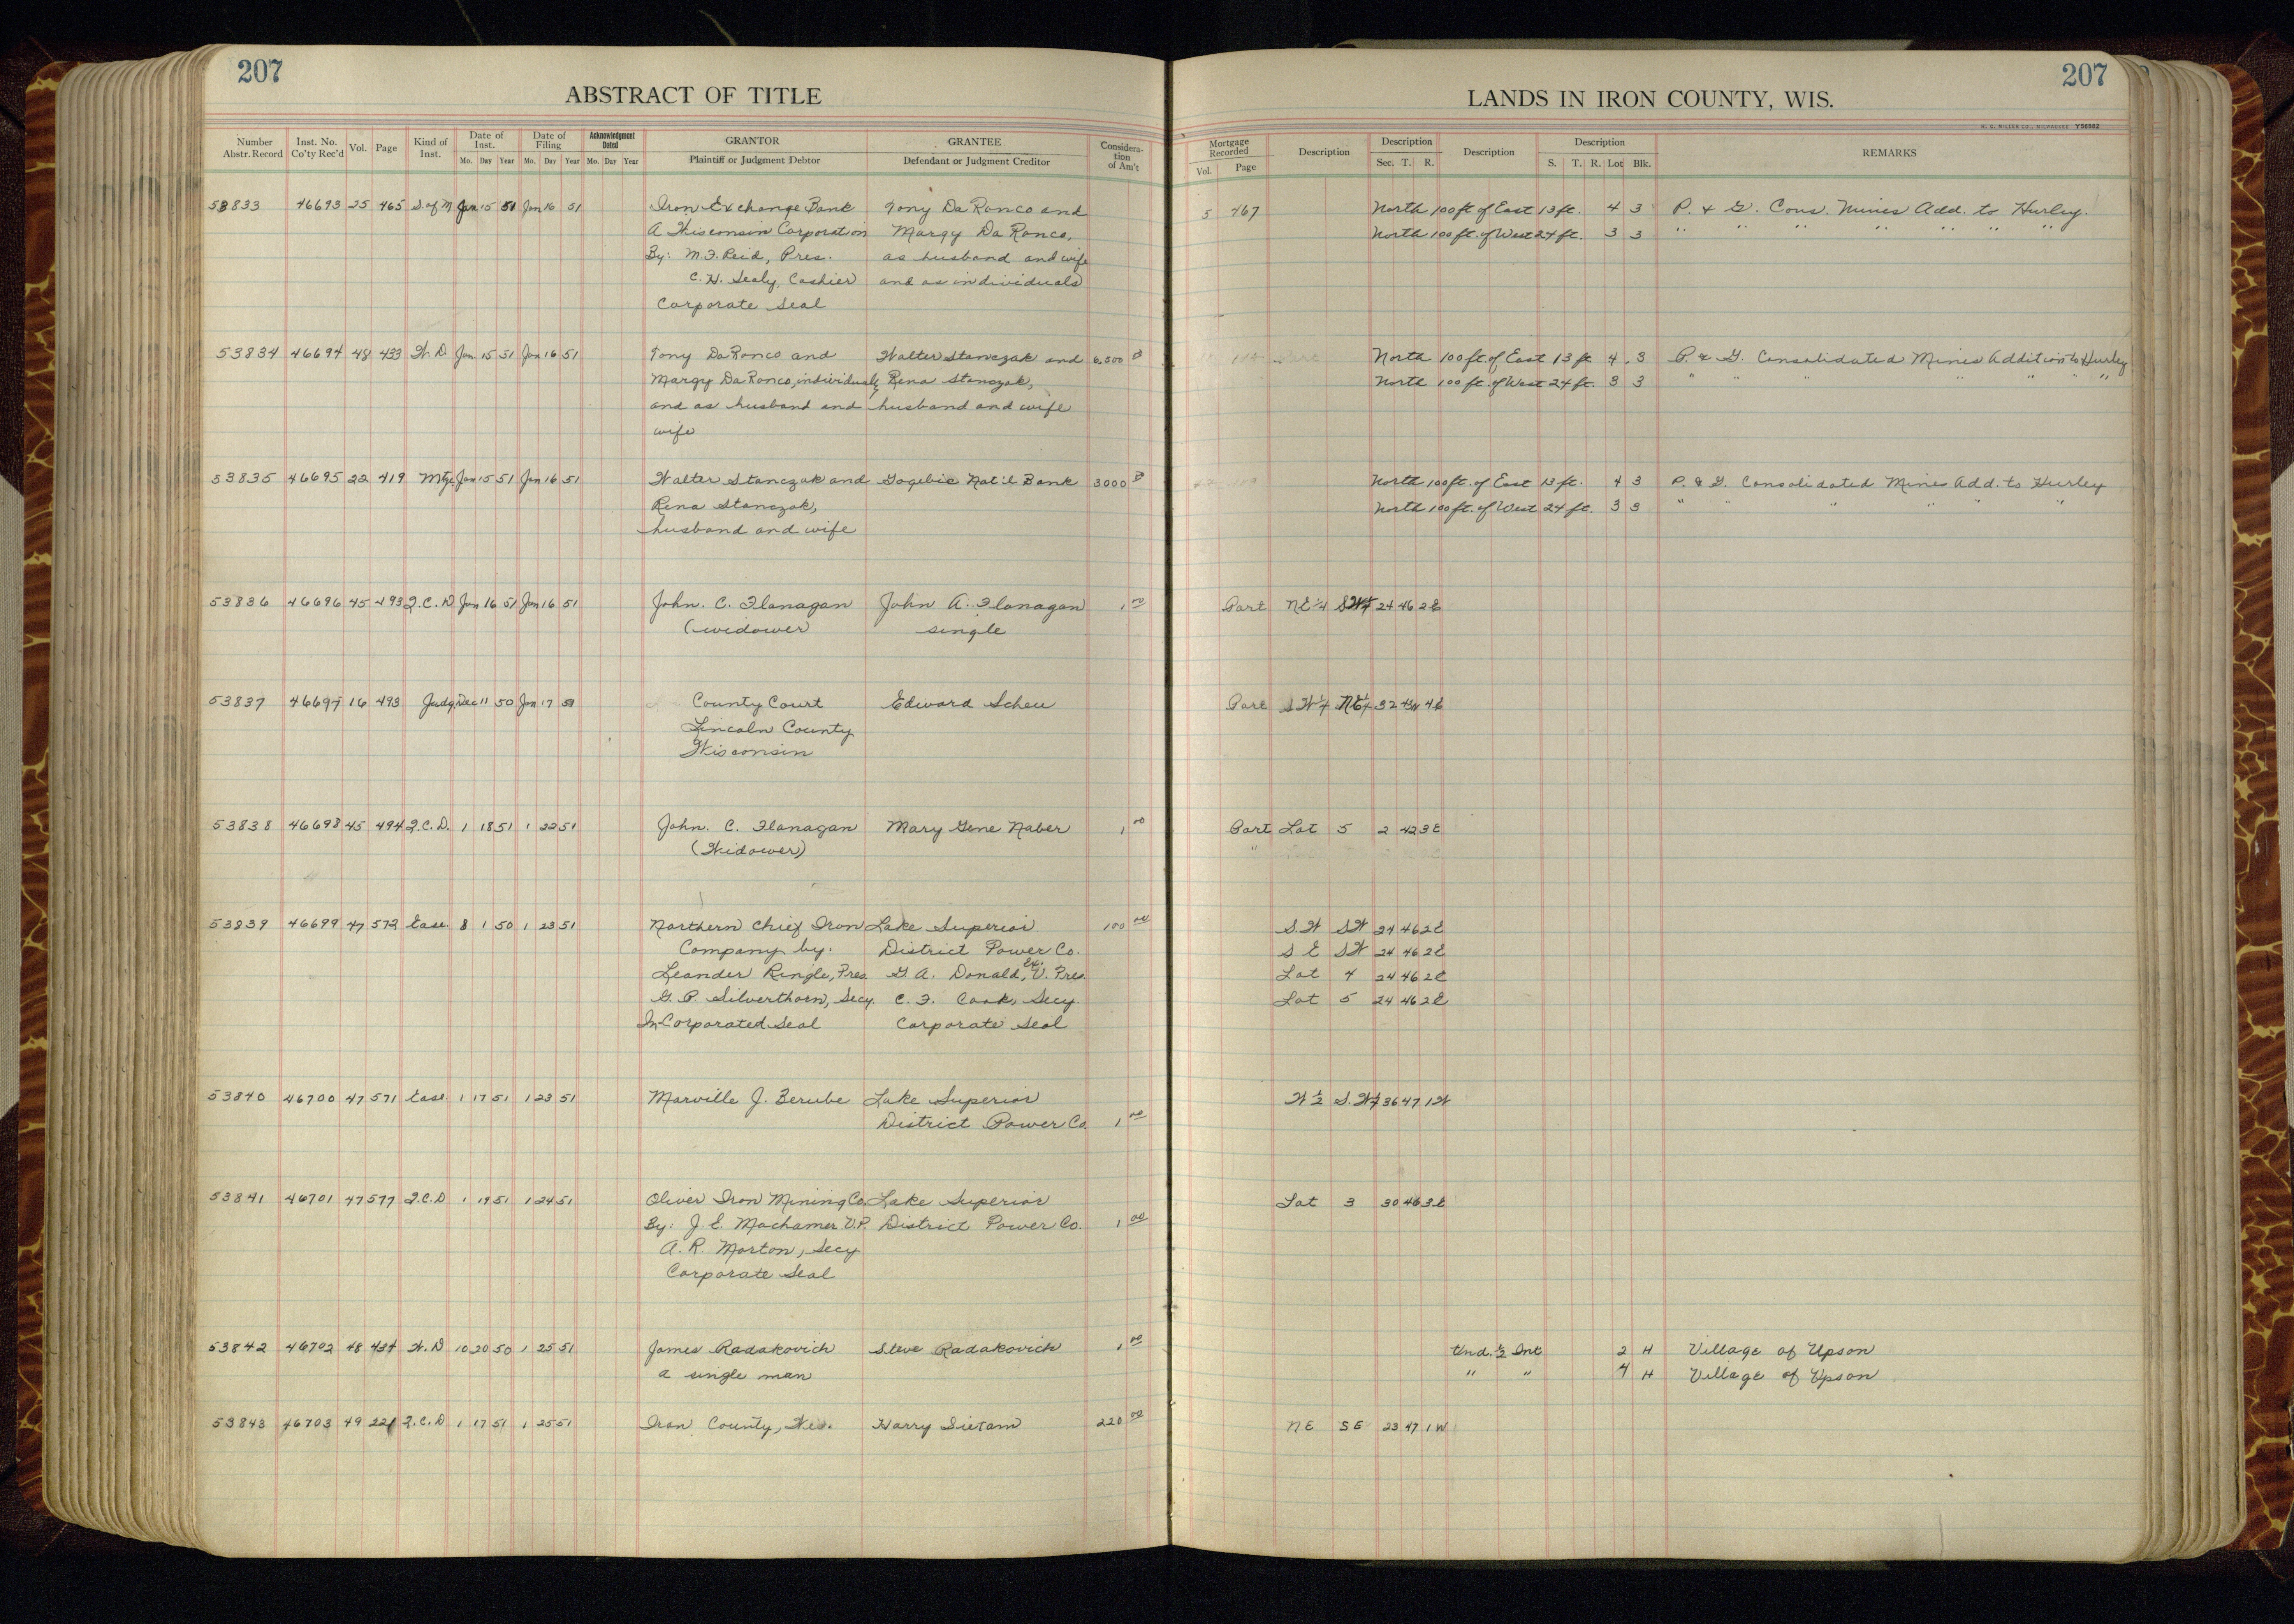 207
ABSTRACT OF TITLE
Number Abstr. Record | Inst. No. Co'ty Rec'd | Vol. | Page | Kind of Inst. | Date of Inst. Mo. Day Year | Date of Filing Mo. Day Year | Acknowledgment Dated Mo. Day Year | GRANTOR Plaintiff or Judgment Debtor | GRANTEE Defendant or Judgment Creditor | Consideration of Am't
53833 46693 25 465 S. of M Jan 15 51 Jan 16 51 Iron Exchange Bank Tony DaRonco and
A Wisconsin Corporation Margy DaRonco,
By: M.F. Reid, Pres. as husband and wife
C.H. Sealy, Cashier and as individuals
Corporate Seal
53834 46694 48 433 W. D Jan. 15 51 Jan 16 51 Tony DaRonco and Walter Stanczak and 6,500
Margy DaRonco, individually Rena Stanczak,
and as husband and husband and wife
wife
53835 46695 22 419 Mtge Jan 15 51 Jan 16 51 Walter Stanczak and Gogebic Nat'l Bank 3000
Rena Stanczak,
husband and wife
53836 46696 45 493 Q.C.D. Jan 16 51 Jan 16 51 John. C. Flanagan John A. Flanagan 1 00
(widower) single
53837 46697 16 493 Judg. Dec 11 50 Jan 17 51 County Court Edward Scheu
Lincoln County
Wisconsin
53838 46698 45 494 Q.C.D. 1 18 51 1 22 51 John. C. Flanagan Mary Gene Naber 1 00
(Widower)
53839 46699 47 572 Ease. 8 1 50 1 23 51 Northern Chief Iron Lake Superior 100 00
Company by: District Power Co.
Leander Ringle, Pres. G. A. Donald, Ex. V. Pres.
G. P. Silverthorn, Secy. C. F. Cook, Secy.
In-Corporated Seal Corporate Seal
53840 46700 47 571 Ease. 1 17 51 1 23 51 Marville J. Berube Lake Superior
District Power Co. 1 00
53841 46701 47 577 Q.C.D 1 19 51 1 24 51 Oliver Iron Mining Co. Lake Superior
By: J. E. Machamer V.P. District Power Co. 1 00
A. R. Morton, Secy
Corporate Seal
53842 46702 48 434 W.D 10 20 50 1 25 51 James Radakovich Steve Radakovich 1 00
a single man
53843 46703 49 221 Q.C.D 1 17 51 1 25 51 Iron County, Wis. Harry Sietam 220 00
207
LANDS IN IRON COUNTY, WIS.
H. C. MILLER CO., MILWAUKEE Y56882
Mortgage Recorded Vol. Page | Description | Description Sec. T. R. | Description | Description S. T. R. Lot Blk. | REMARKS
5 467 North 100 ft of East 13 ft. 4 3 P. & G. Cons. Mines Add. to Hurley.
North 100 ft. of West 24 ft. 3 3 " " " " " " "
North 100 ft. of East 13 ft 4 3 P. & G. Consolidated Mines Addition to Hurley
North 100 ft. of West 24 ft. 3 3 " " " " " "
North 100 ft. of East 13 ft. 4 3 P. & G. Consolidated Mines Add. to Hurley
North 100 ft. of West 24 ft. 3 3 " " " " "
Part NE 1/4 SW 1/4 24 46 2E
Part SW 1/4 NE 1/4 32 43N 4E
Part Lot 5 2 42 3E
S.W SW 24 46 2E
S E SW 24 46 2E
Lot 4 24 46 2E
Lot 5 24 46 2E
W 1/2 S.W 1/4 36 47 1W
Lot 3 30 46 3E
Und. 1/2 Int 2 H Village of Upson
" " 4 H Village of Upson
NE SE 23 47 1W